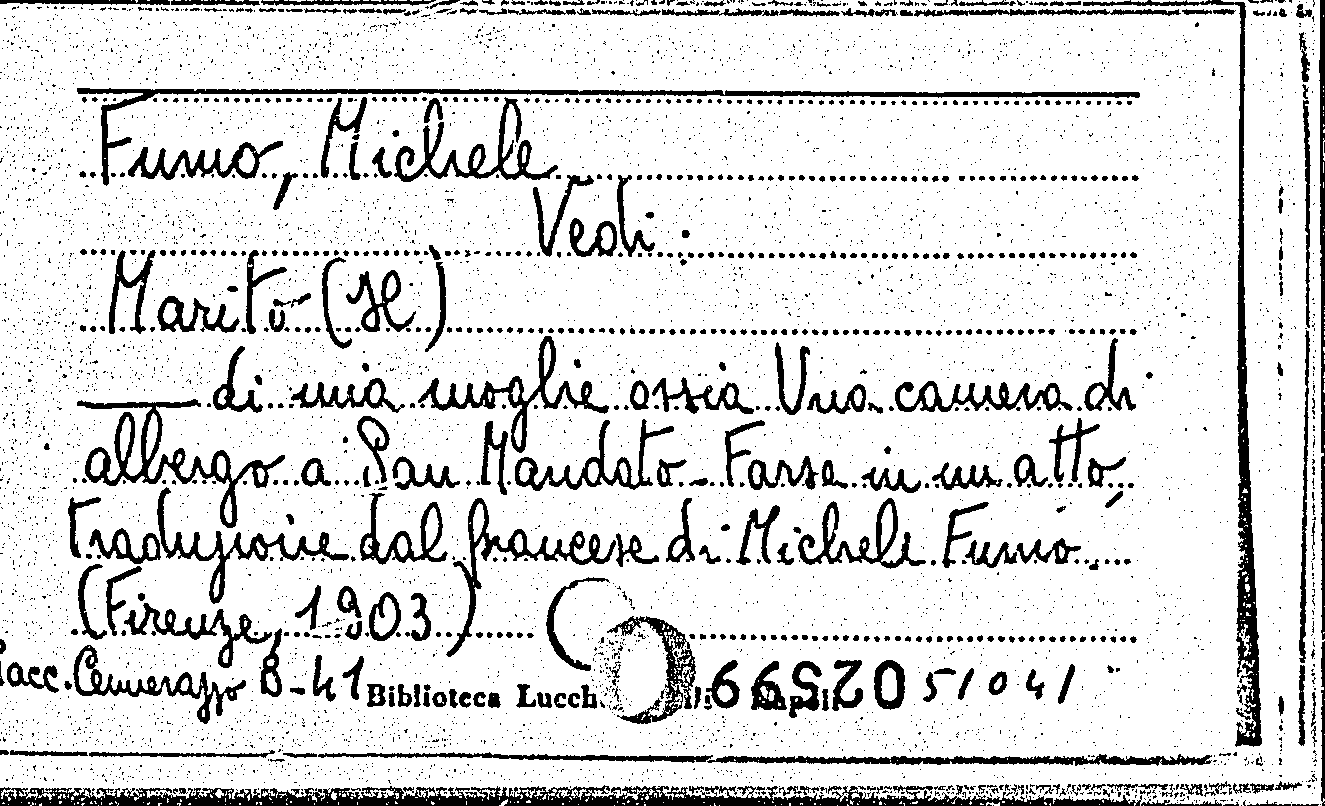 Fumo, Michele
Vedi:
Marito (Il)
di mia moglie ossia Una camera di
albergo a San Mandato - Farse in un atto,
traduzione dal francese di Michele Fumo.
(Firenze, 1903)
Racc. Cennerazzo B-41 Biblioteca Lucch Napoli 51041